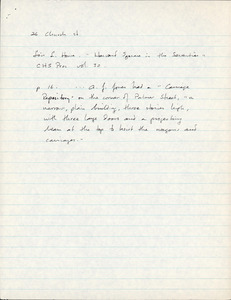 26 Church St.
Lois L. Howe - "Harvard Square in the Seventies -
CHS Proc. vol. 30
p. 16. ... A. J. Jones had a "Carriage
Repository" on the corner of Palmer Street, "a
narrow, plain building, three stories high,
with three large doors and a projecting
beam at the top to hoist the wagons and
carriages."